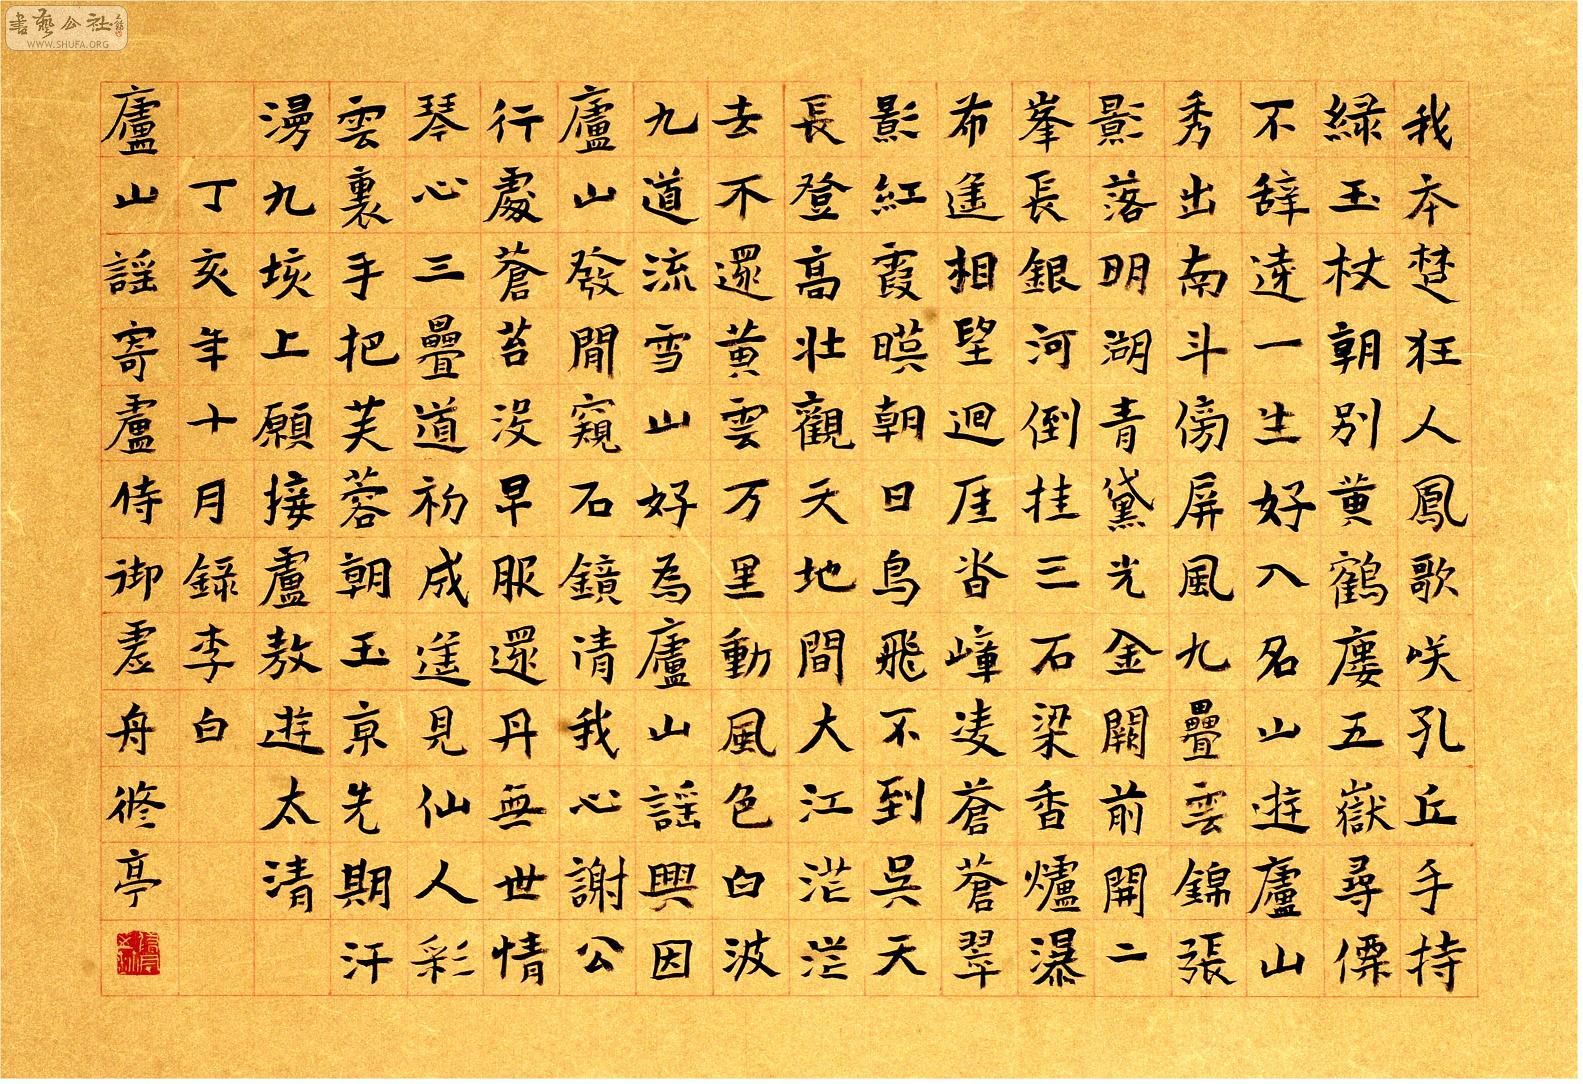 書藝公社
WWW.SHUFA.ORG
我本楚狂人鳳歌咲孔丘手持
緑玉杖朝別黄鶴廔五嶽尋僊
不辞遠一生好入名山遊廬山
秀出南斗傍屏風九疊雲錦張
影落明湖青黛光金闕前開二
峯長銀河倒挂三石梁香爐瀑
布遙相望迴厓沓嶂凌蒼蒼翠
影紅霞暎朝日鳥飛不到吳天
長登高壯觀天地間大江茫茫
去不還黄雲万里動風色白波
九道流雪山好為廬山謠興因
廬山發閒窺石鏡清我心謝公
行處蒼苔沒早服還丹無世情
琴心三疊道初成遙見仙人彩
雲裏手把芙蓉朝玉京先期汗
漫九垓上願接盧敖遊太清
丁亥年十月錄李白
廬山謠寄盧侍御虛舟修亭